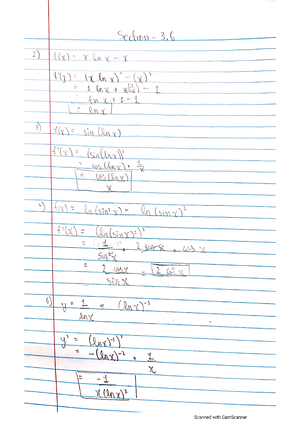 Section - 3.6
2) f(x) = x ln x - x
f'(x) = (x ln x)' - (x)'
= 1 ln x + x(1/x) - 1
= ln x + 1 - 1
= ln x
3) f(x) = sin (ln x)
f'(x) = (sin(ln x))'
= cos (ln x) · 1/x
= cos (ln x) / x
4) f(x) = ln (sin² x) = ln (sin x)²
f'(x) = (ln (sin x)²)'
= 1/sin²x · 2 sin x · cos x
= 2 cos x / sin x = 2 cot x
y = 1/ln x = (ln x)⁻¹
y' = (ln x)⁻¹)'
= -(ln x)⁻² · 1/x
= -1 / x(ln x)²
Scanned with CamScanner